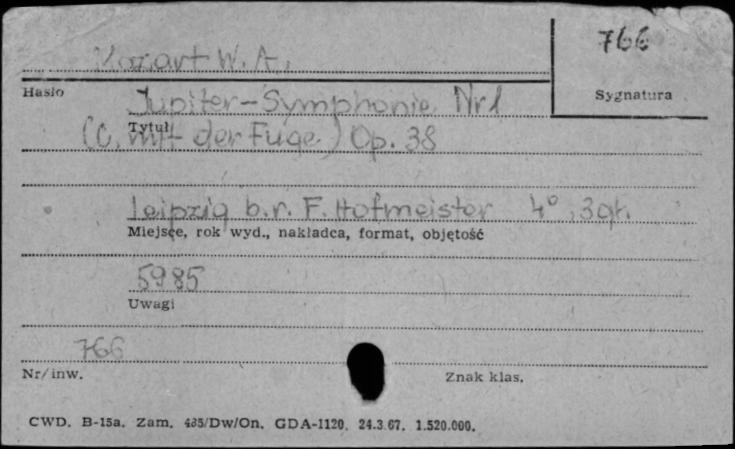 766
Mozart W. A.
Hasło
Sygnatura
Jupiter-Symphonie. Nr 1
Tytuł
(C. mit der Fuge.) Op. 38
Leipzig b.r. F. Hofmeister 4°, 3 gł.
Miejsce, rok wyd., nakładca, format, objętość
5985
Uwagi
766
Nr/inw.
Znak klas.
CWD. B-15a. Zam. 485/Dw/On. GDA-1120. 24.3.67. 1.520.000.